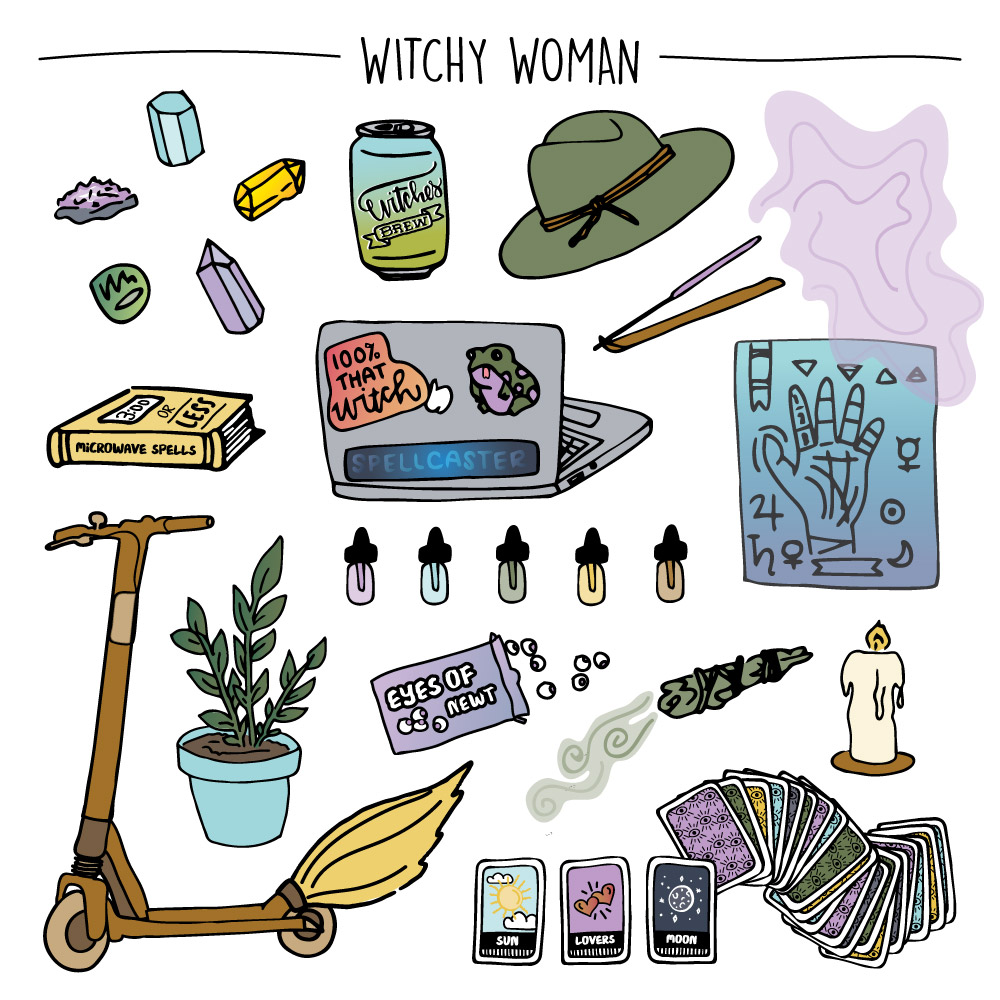 WITCHY WOMAN
Witches
BREW
100%
THAT
witch
SPELLCASTER
3:00
OR
LESS
MICROWAVE SPELLS
EYES OF
NEWT
SUN
LOVERS
MOON